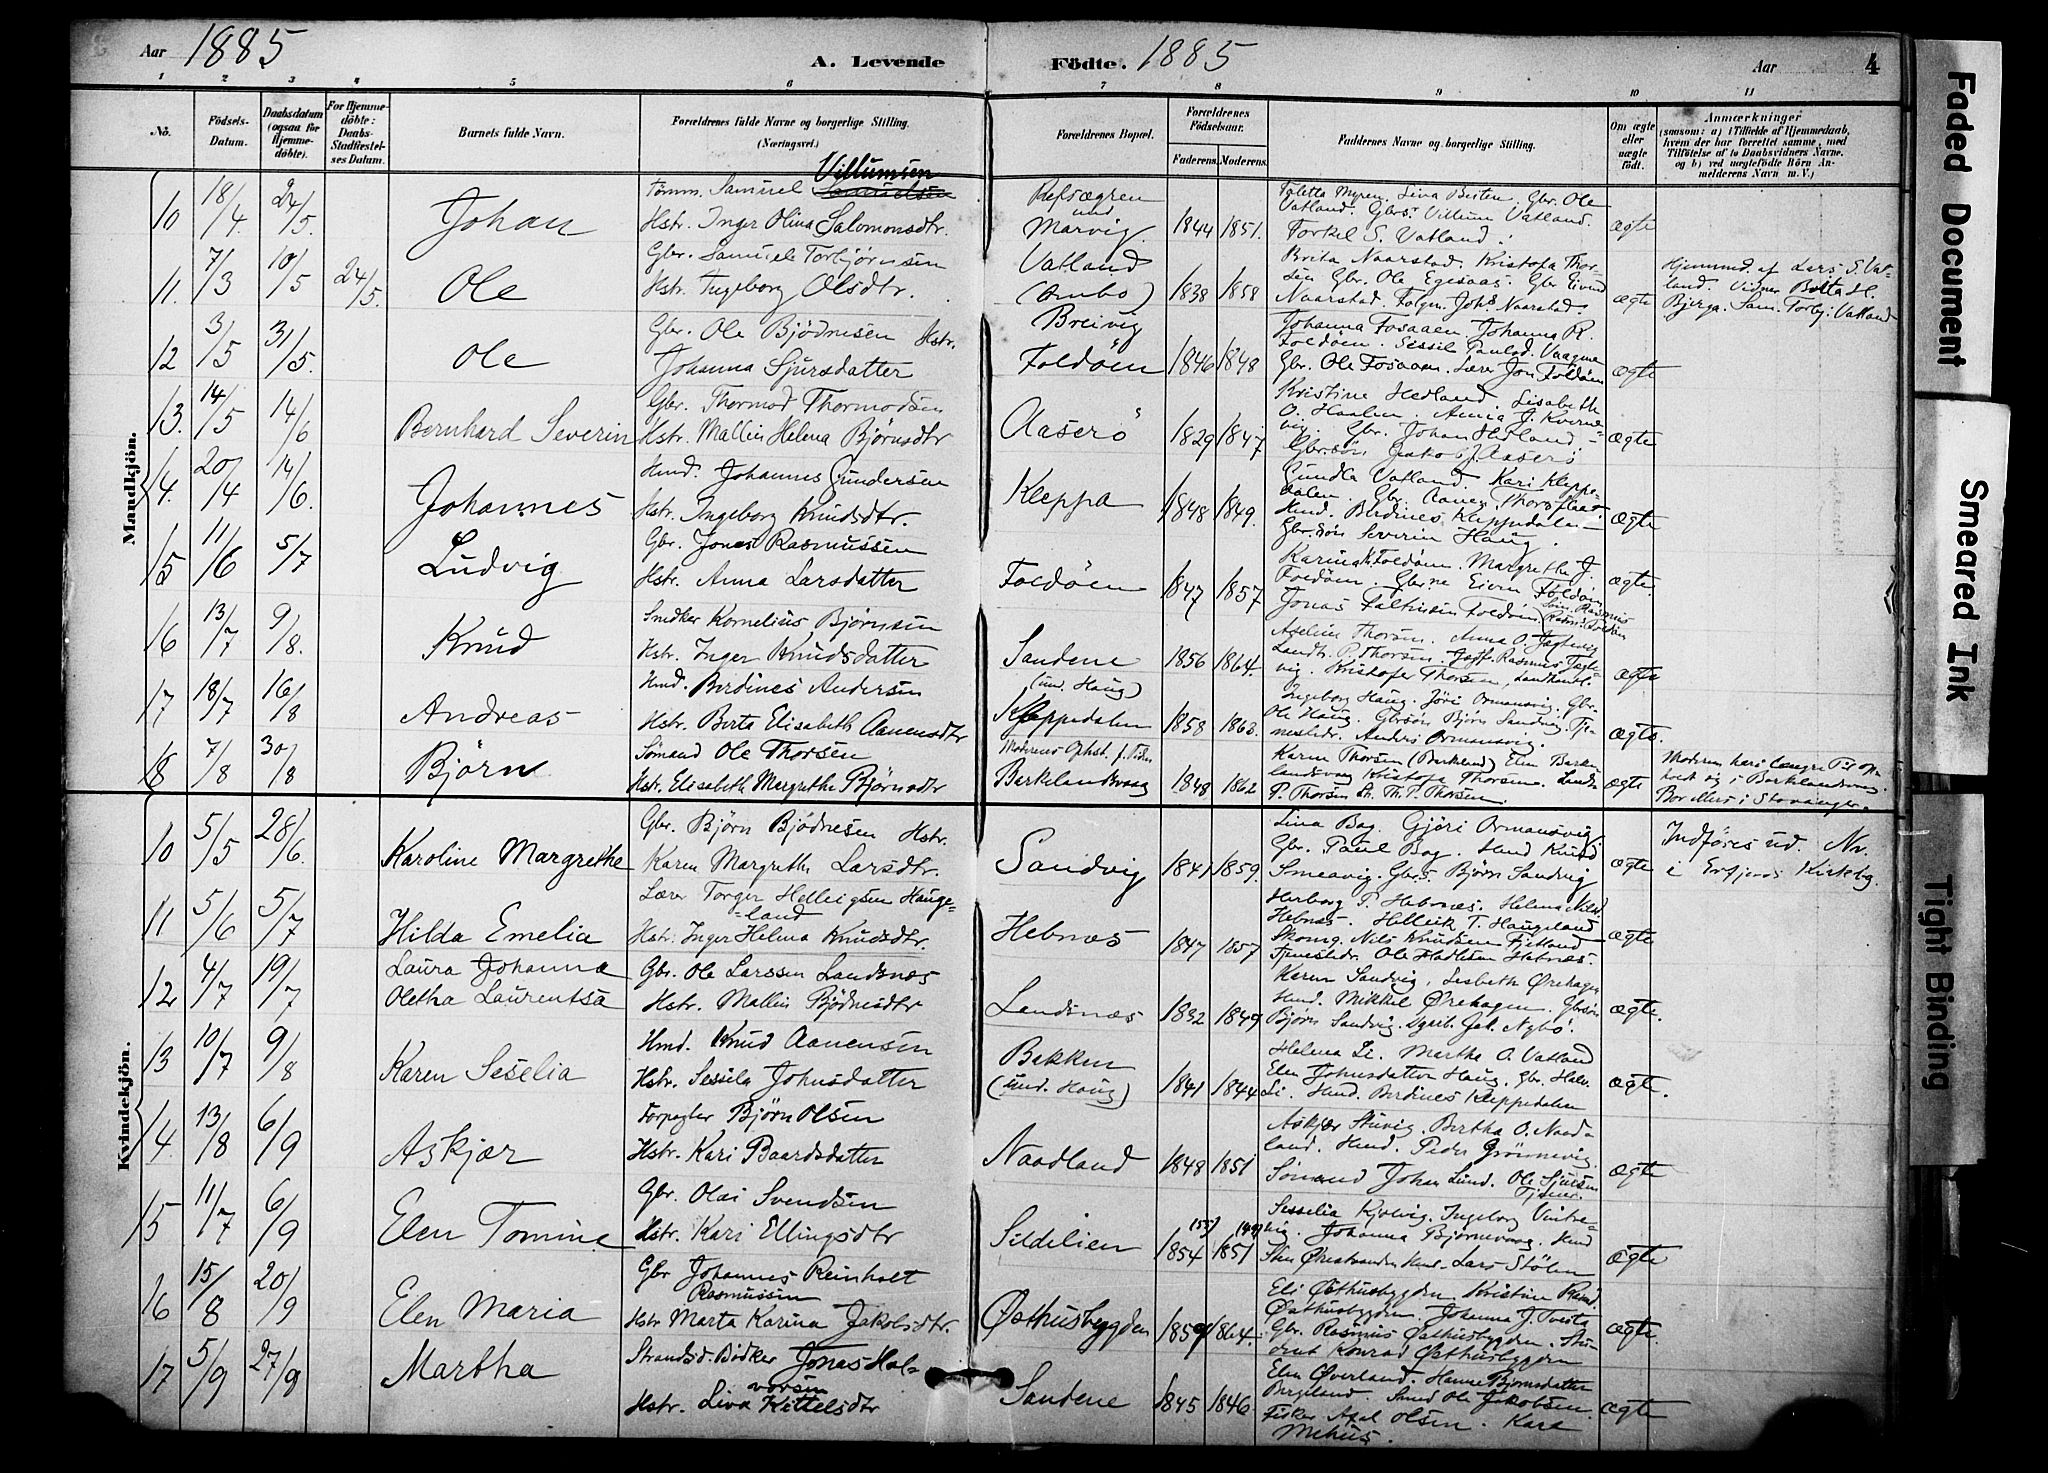 Aar 1885 A. Levende Födte. 1885 Aar 4
1 2 3 4 5 6 7 8 9 10 11
Nö. Födsels-Datum. Daabsdatum (ogsaa for Hjemmedöbte). For Hjemmedöbte: Daabs-Stadfæstelses Datum. Barnets fulde Navn. Forældrenes fulde Navne og borgerlige Stilling. (Næringsvei.) Forældrenes Bopæl. Forældrenes Födselsaar. Faderens. Moderens. Faddernes Navne og borgerlige Stilling. Om ægte eller uægte födt. Anmærkninger (saasom: a) i Tilfælde af Hjemmedaab, hvem der har forrettet samme, med Tilföielse af to Daabsvidners Navne, og b) ved uægtefödte Börn Anmelderens Navn m. V.)
Mandkjön.
10 18/4 24/5 Johan Tømm. Samuel Samuelsen Villumsen
Hstr. Inger Olina Salomonsdtr. Refsægren und Marvig. 1844 1851. Toletta Myren. Liva Bersten. Gbr. Ole
Vatland. Gbrs. Villum Vatland.
Torkel S. Vatland. ægte
11. 7/3 10/5 24/5. Ole Gbr. Samuel Torbjörnsen
Hstr. Ingeborg Olsdtr. Vatland (Ombo) 1838 1858 Brita Naarstad. Kristofa Thor-
sen Gbr. Ole Egesaas. Gbr Eivind
Naarstad. Folgm. Johs Naarstad. ægte Hjemmed. af Lars S. Vat-
land. Vidner Berta H.
Bjerga. Sam. Torbj: Vatland
12 3/5 31/5. Ole Gbr. Ole Bjödnesen Hstr.
Johanna Sjursdatter Breivig Foldöen 1846 1848 Johanna Fosaaen. Johanna R.
Foldöen. Sessil Paulsd. Vaagene
Gbr. Ole Fosaaen. Lærer Jon Foldöen ægte
13. 14/5 14/6 Bernhard Severin Gbr. Thormod Thormodsen
Hstr. Mallin Helena Björnsdtr Aaserö 1829 1847 Kristine Hedland. Lisabeth
O. Haalen. Anna J. Kverne-
vig. Gbr. Johan Hedland -
Gbrsön Jakob J. Aaserö ægte
14. 20/4 14/6. Johannes Hmd. Johannes Gundersen
Hstr. Ingeborg Knudsdtr. Kleppa 1848 1849. Gundla Vatland. Kari Kleppe-
dalen. Gbr. Aanen Thorsflaat.
Hmd. Berdines Kleppedalen -
Gbr.sön Severin Haug. ægte
15 11/6 5/7 Ludvig Gbr. Jonas Rasmussen
Hstr. Anna Larsdatter Foldöen 1847 1857 Karina K Foldöen. Margrethe J.
Foldöen. Gbrne Eivin Foldöen
Jonas Faltinsen Foldöen ægte.
16 13/7 9/8. Knud Snedker Kornelius Björnsen
Hstr. Inger Knudsdatter Sandene (und. Haug) 1856 1864. Aseline Thorsen. Anna O. Jegtevig
Landh. P. Thorsen. Rasmus Jegte-
vig. Kristofer Thorsen, Landhandl. ægte
17 18/7 16/8 Andreas Hmd. Berdines Andersen
Hstr. Berta Elisabeth Aanensdtr Kleppedalen 1858 1863. Ingeborg Haug. Jöri Ormansvig. Gbr.
Ole Haug. Gbrsön Björn Sandvig. Tje-
nestedr. Anders Ormansvig. ægte.
18 7/8 30/8 Björn Sömand Ole Thorsen
Hstr. Elisabeth Margrethe Björnsdtr Moderens Ophst. f. Tiden Berkelandsvaag 1848 1862 Karen Thorsen (Berkland) Elen Berke-
landsvaag Kristofa Thorsen. Landh
P. Thorsen Th. P. Thorsen. ægte Moderen har længre Tids Op-
hold og i Berklandsvaag.
Bor ellers i Stavanger.
Kvindekjön.
10 5/5 28/6. Karoline Margrethe Gbr. Björn Bjödnesen Hstr.
Karen Margreth Larsdtr. Sandvig 1841 1859. Lina Bag. Gjöri Ormansvig
Gbr. Paul Bag. Hmd Knud
Smeavig. Gbrs. Björn Sandvig ægte Indföres ud. Nr.
i Erfjords Kirkebg.
11 5/6 5/7 Hilda Emelia Lærer Torger Helleigsen Hauge-
land
Hstr. Inger Helena Knudsdtr. Hebnæs 1847 1857 Herborg T. Hebnæs. Helena Nilsd
Hebnæs. Helleik T. Haugeland
Skomg. Nils Knudsen Fjetland
Tjenestedr. Ole Hadlesen Hebnæs. ægte
12 4/7 19/7 Laura Johanna
Oletha Laurentsa Gbr. Ole Larssen Landsnæs
Hstr. Mallin Bjödnesdtr Landsnæs 1832 1849 Karen Sandvig. Lisbeth Ørehagen
Hmd. Mikkel Ørehagen. Gbrsön
Björn Sandvig. Dgarb. Jak. Nybö. ægte.
13 10/7 9/8 Karen Seselia Hmd. Knud Aanensen
Hstr. Sessela Johnsdatter Bakken (und. Haug) 1841 1844 Helena Li. Martha O. Vatland
Elen Johnsdatter Haug. Gbr. Halv.
Li. Hmd. Berdines Kleppedalen ægte.
14. 13/8 6/9 Askjær Forpagter Björn Olsen
Hstr. Kari Baardsdatter Naadland 1848 1851 Askjær Stuvig. Bertha O. Naad-
land. Hmd. Peder Grönnevig.
Sömand Johan Lund. Ole Sjursen
Tjener. ægte
15 11/7 6/9 Elen Tomine Gbr. Olai Svendsen
Hstr. Kari Ellingsdtr Sildelien 1854 1851 Sesselia Kjölvig. Ingeborg Vintre-
vig. Johanna Björnevaag. Hmd
Sten Ørestranden Hmd. Lars Stölen ægte
16 15/8 20/9 Elen Maria Gbr Johannes Reinholt
Rasmussen
Hstr Marta Karina Jakobsdtr. Østhusbygden 1859 1864. Eli Østhusbygden. Kristine Rasmd.
Østhusbygden. Johanna J. Tveita
Gbr. Rasmus Østhusbygden. Stu-
dent Konrad Østhusbygden ægte.
17 5/9 27/9 Martha Strandsd. Bödker Jonas Hal-
vorsen
Hstr. Liva Kittelsdtr Sandene 1845 1846 Elen Øverland. Hanse Björnsdatter
Bergeland. Smed Ole Jakobsen.
Fisker Axel Olsen. Kara
Mehus. ægte
Faded Document
Smeared Ink
Tight Binding